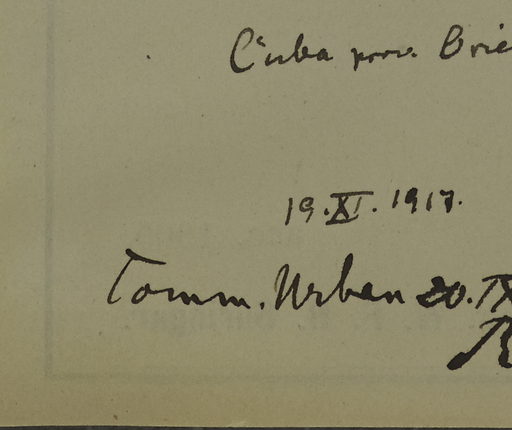 Cuba prov. Orie
19.XI.1917.
Tomm. Urban 20.IX